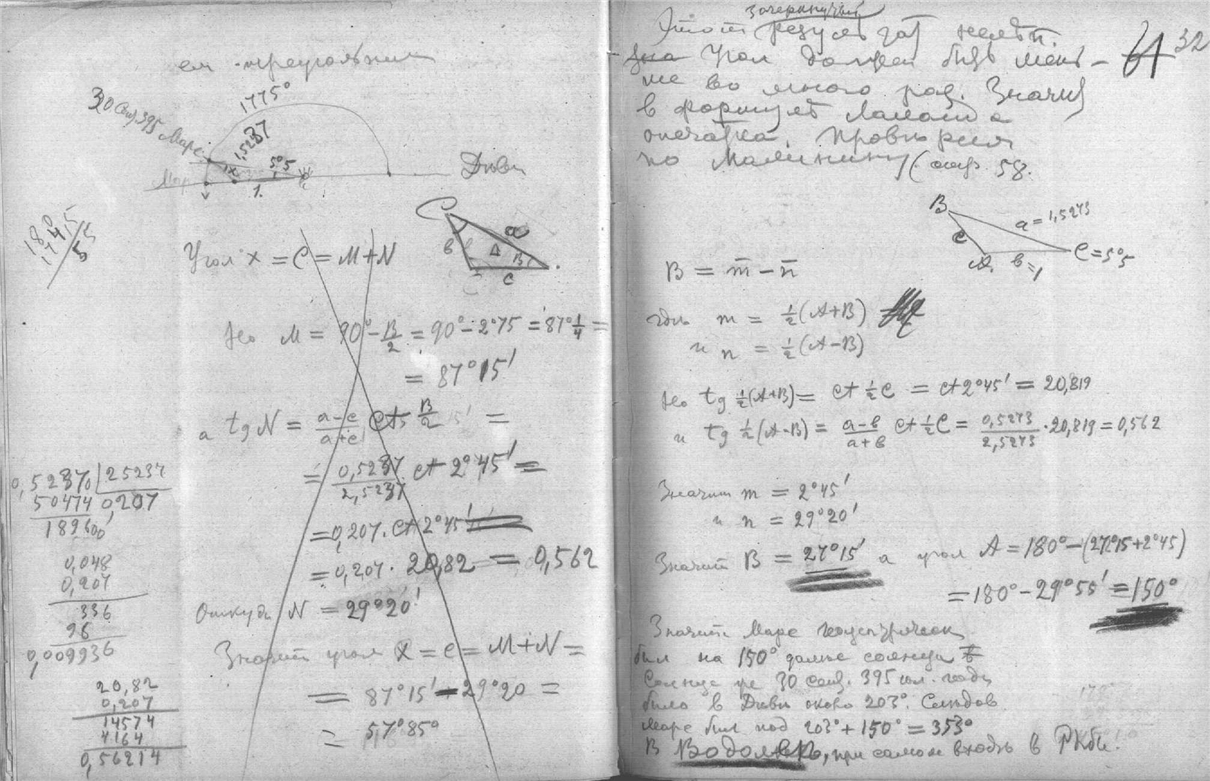 177,5°
30 Сент. 395 Марс
1,5237
5°5
1.
Дивы
180
174,5
5,5
C
a
b
B
c
Угол x = C = M+N
Но M = 90° - B/2 = 90° - 2°75 = 87°1/4 =
= 87°15'
а tg N = a-c/a+c ct B/2 =
= 0,5237/2,5237 ct 2°45' =
= 0,207. ct 2°45'
= 0,207. 20,82 = 0,562
Откуда N = 29°20'
Значит угол X = C = M+N =
= 87°15' - 29°20 =
= 57°85°
0,52370 | 25237
50474 0,207
189600
0,048
0,207
336
96
0,009936
20,82
0,207
14574
4164
0,56214
зачеркнутый
Этот результат нелеп.
Угол должен быть мень-
ше во много раз. Значит
в формуле
опечатка. Проверяем
по Малинину (стр. 58.
32
B
a = 1,5273
c
A
b = 1
C = 5°5
B = m - n
где m = 1/2 (A+B)
и n = 1/2 (A-B)
Но tg 1/2 (A+B) = ct 1/2 C = ct 2°45' = 20,819
и tg 1/2 (A-B) = a-b/a+b ct 1/2 C = 0,5273/2,5273 . 20,819 = 0,562
Значит m = 2°45'
и n = 29°20'
Значит B = 27°15' а угол A = 180° - (27°15+2°45)
= 180° - 29°55' = 150°
Значит Марс
был на 150° далее солнца
Солнце же 30 сент. 395 юл. года
было в Диви около 203°. Следов
Марс был под 203° + 150° = 353°
В Водолее, при самом входе в Рыбы.